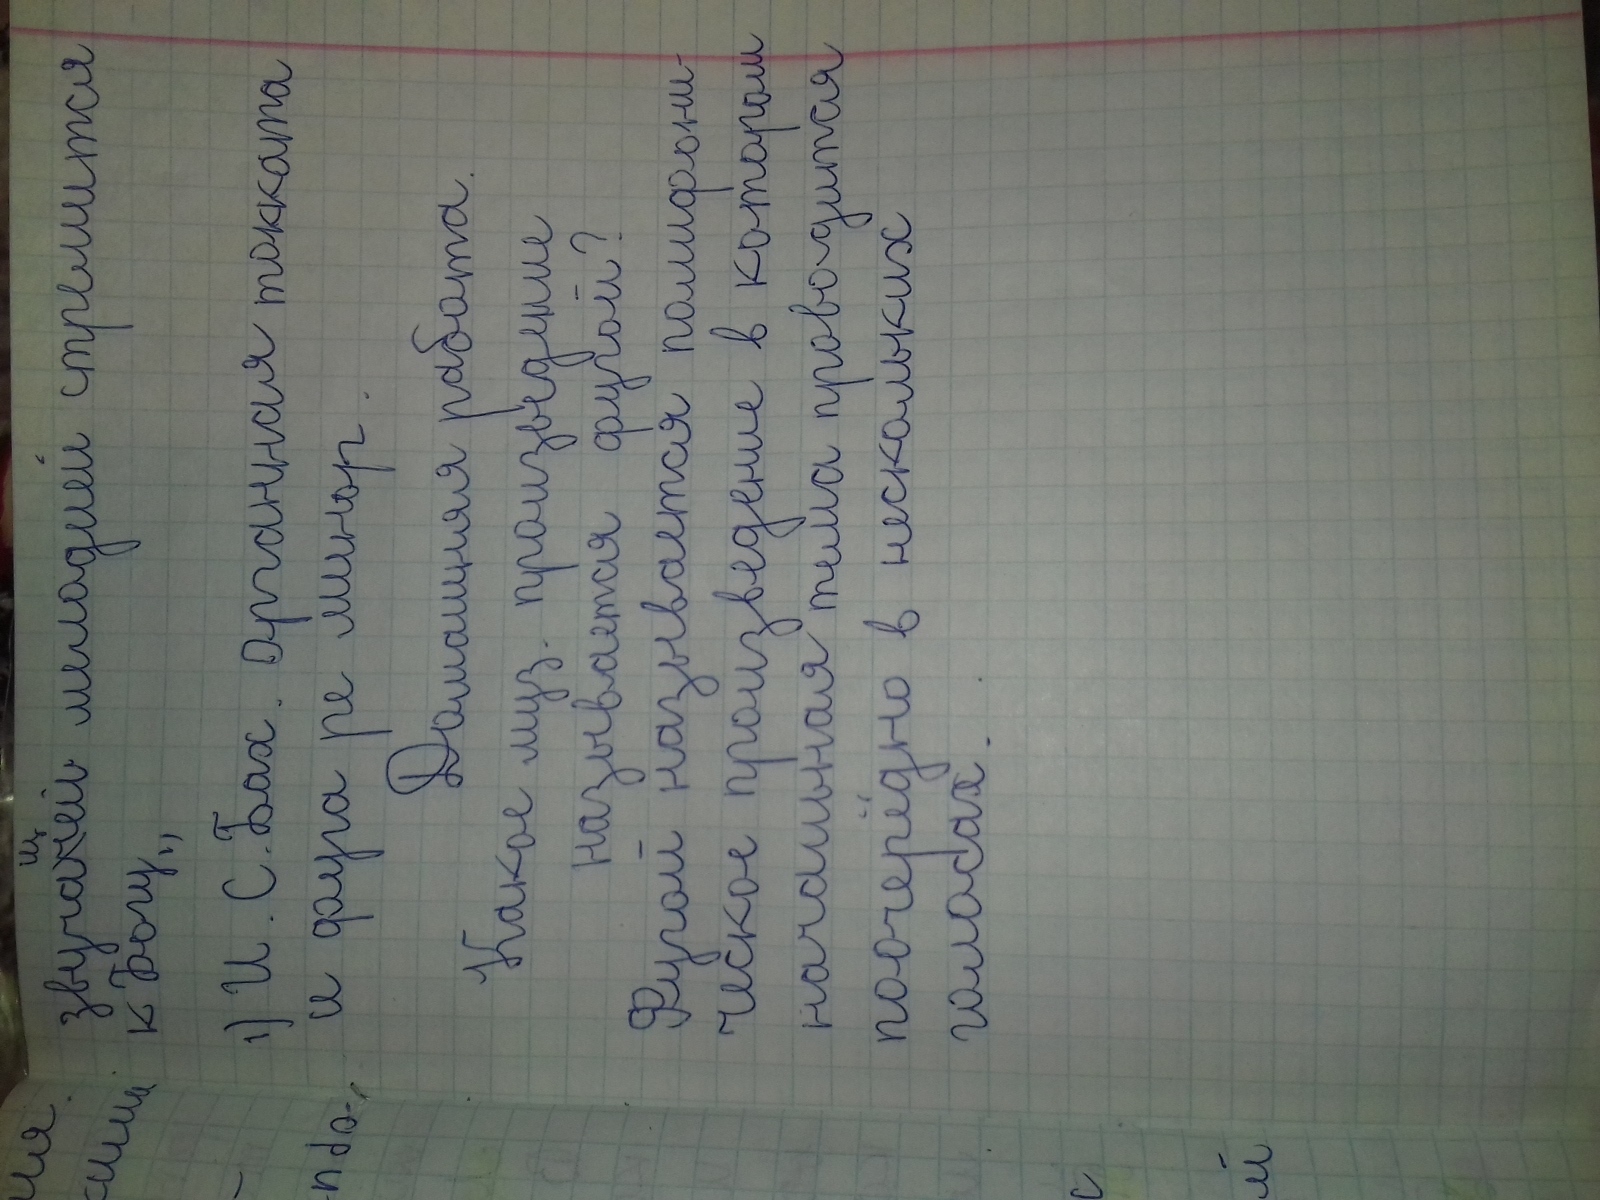 звучащей мелодией стремится
к Богу„
1) И. С. Бах. Органная токката
и фуга ре минор.
Домашняя работа.
Какое муз. произведение
называется фугой?
Фугой называется полифони-
ческое произведение в котором
начальная тема проводится
поочерёдно в нескольких
голосах.